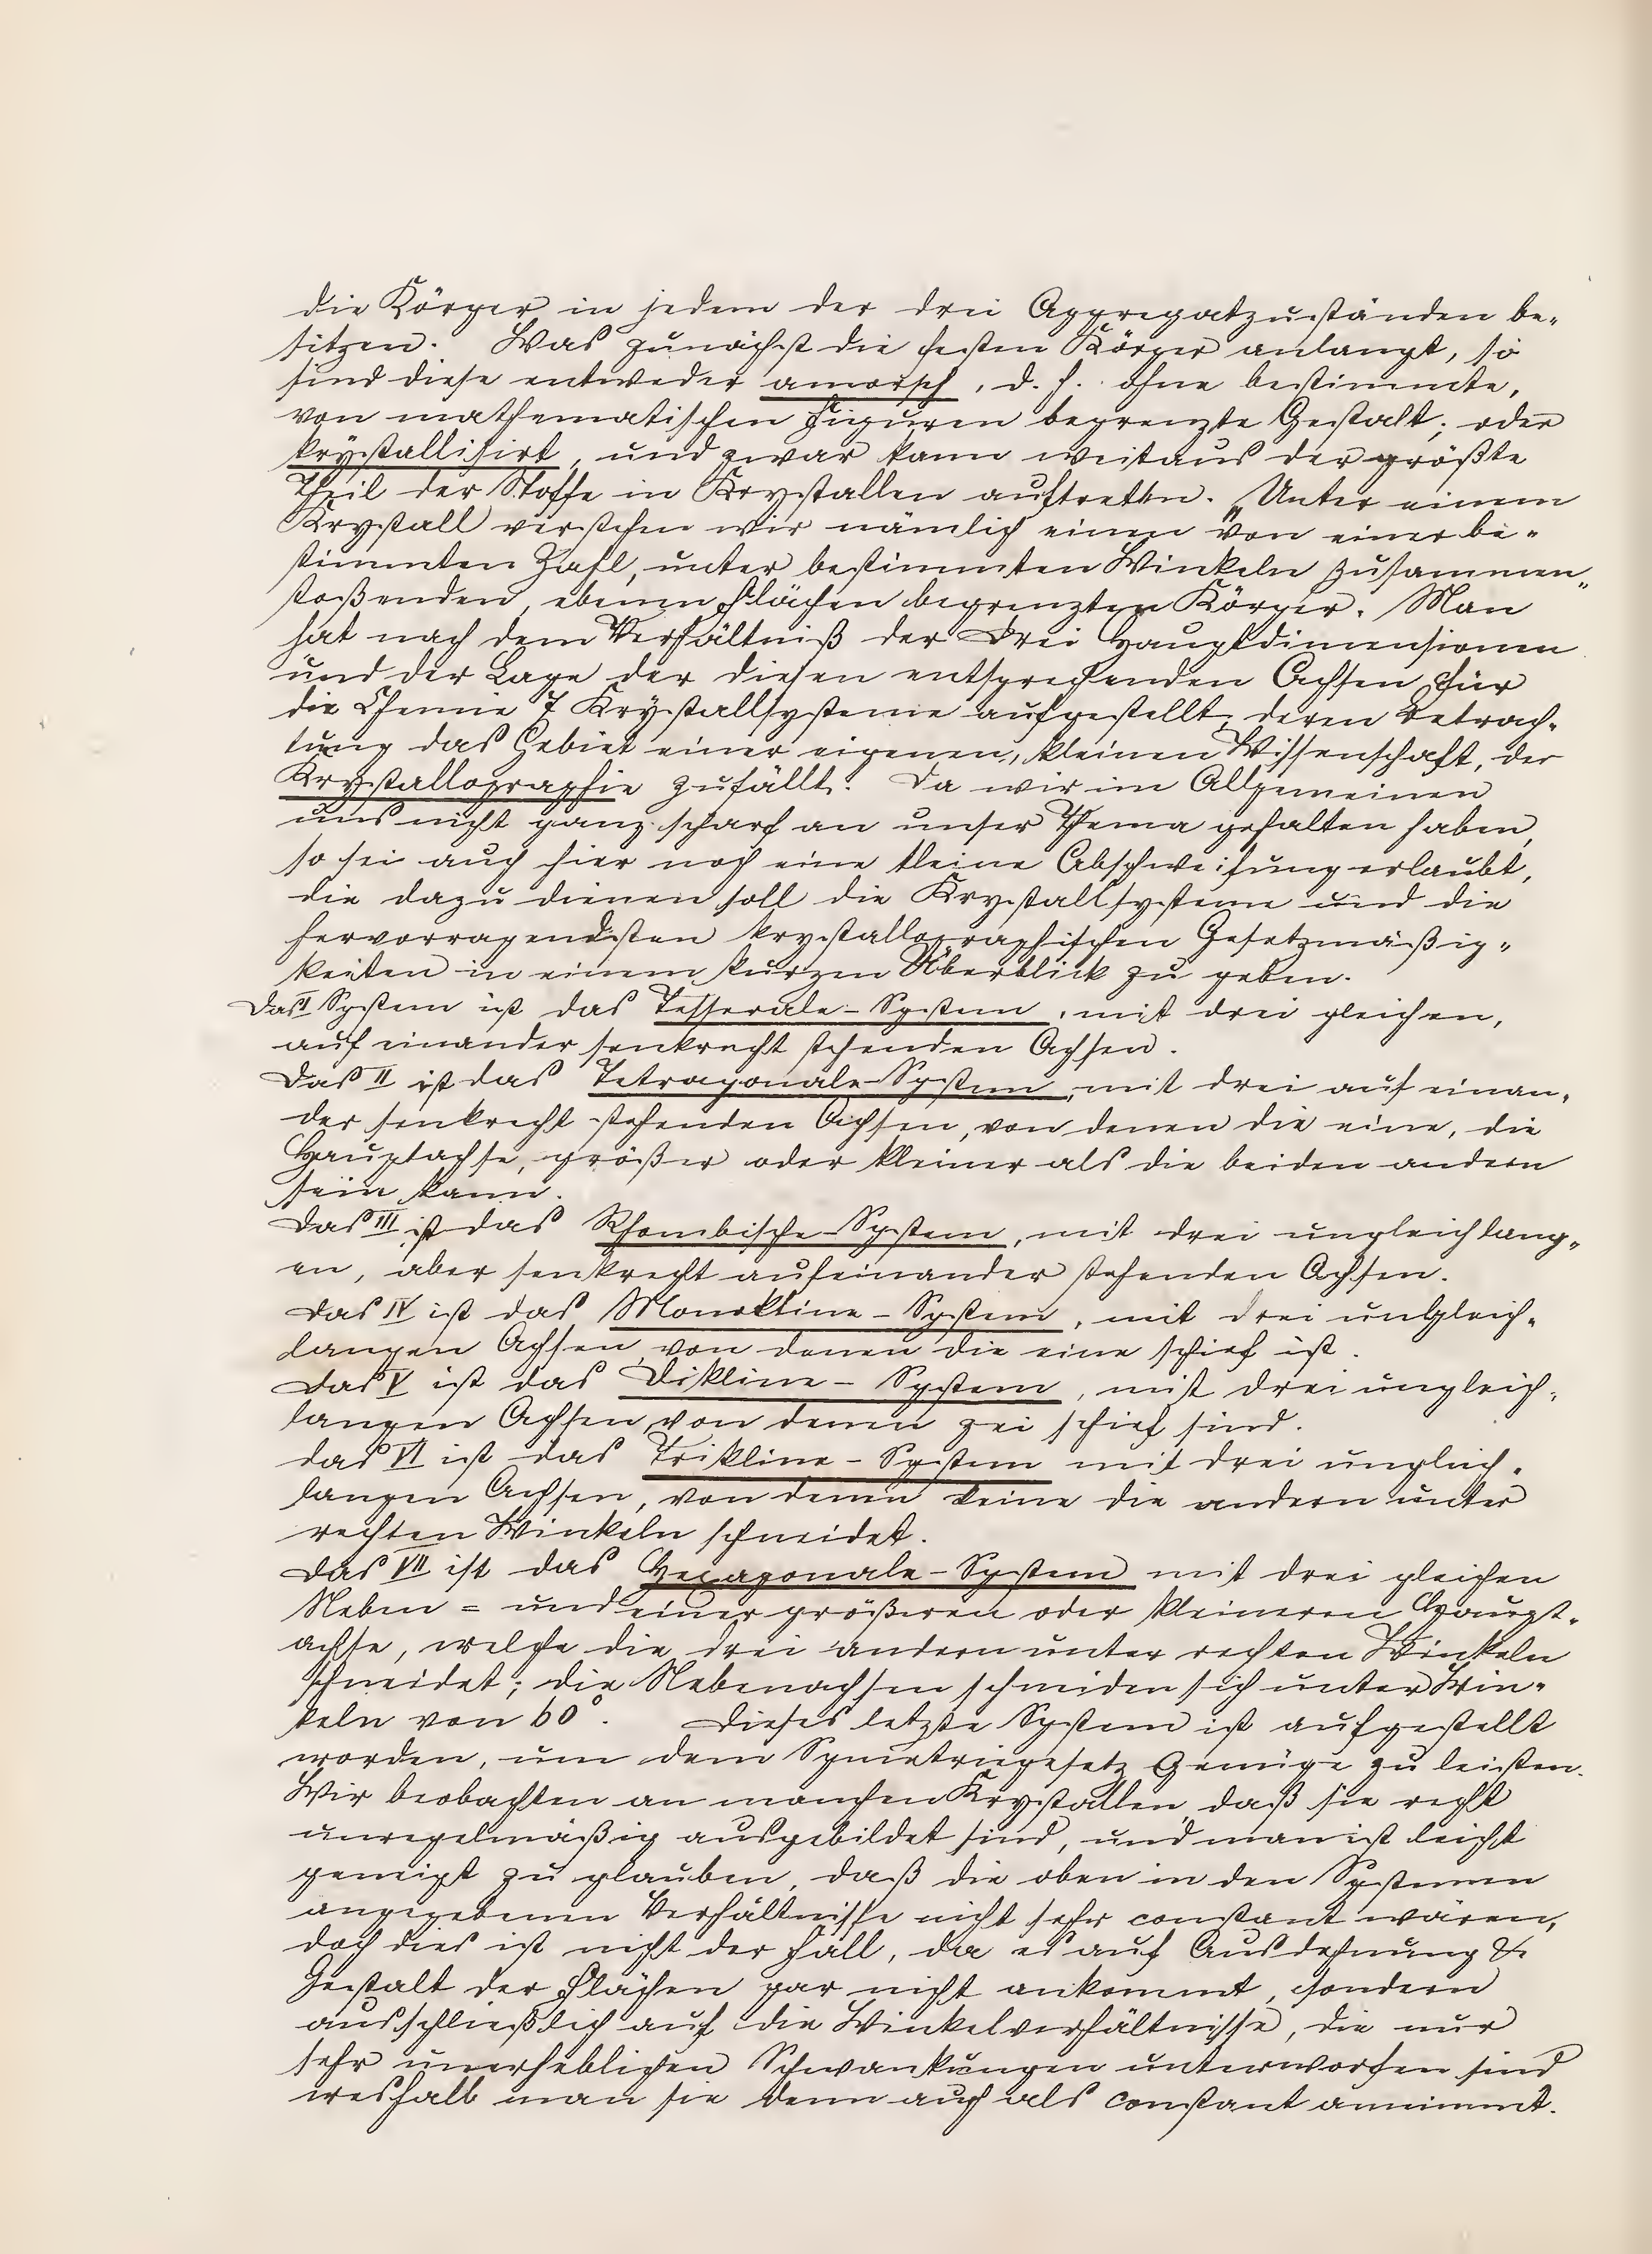 die Körper in jedem der drei Aggregatzuständen be-
sitzen. Was zunächst die festen Körper anlangt, so
sind diese entweder amorph, d. h. ohne bestimmte,
von mathematischen Figuren begrenzte Gestalt; oder
krystallisirt, und zwar kann weitaus der größte
Theil der Stoffe in Krystallen auftreten. Unter einem
Krystall verstehen wir nämlich einen von einer be-
stimmten Zahl, unter bestimmten Winkeln zusammen-
stoßenden, ebenen Flächen begrenzten Körper. Man
hat nach dem Verhältniß der drei Hauptdimensionen
und der Lage der diesen entsprechenden Achsen für
die Chemie 7 Krystallsysteme aufgestellt, deren Betrach-
tung das Gebiet einer eigenen, kleinen Wissenschaft, der
Krystallographie zufällt. Da wir im Allgemeinen
uns nicht ganz scharf an unser Thema gehalten haben,
so sei auch hier noch eine kleine Abschweifung erlaubt,
die dazu dienen soll die Krystallsysteme und die
hervorragendsten krystallographischen Gesetzmäßig-
keiten in einem kurzen Überblick zu geben.
Das I System ist das Tesserale-System, mit drei gleichen,
auf einander senkrecht stehenden Achsen.
Das II ist das Tetragonale-System, mit drei auf einan-
der senkrecht stehenden Achsen, von denen die eine, die
Hauptachse, größer oder kleiner als die beiden andern
sein kann.
Das III ist das Rhombische-System, mit drei ungleichlang-
en, aber senkrecht aufeinander stehenden Achsen.
Das IV ist das Monokline-System, mit drei ungleich-
langen Achsen, von denen die eine schief ist.
Das V ist das Dikline-System, mit drei ungleich-
langen Achsen, von denen zei schief sind.
das VI ist das Trikline-System mit drei ungleich-
langen Achsen, von denen keine die andern unter
rechten Winkeln schneidet.
Das VII ist das Hexagonale-System mit drei gleichen
Neben = und einer größeren oder kleineren Haupt-
achse, welche die drei andern unter rechten Winkeln
schneidet; die Nebenachsen schneiden sich unter Win-
keln von 60°. Dieses letzte System ist aufgestellt
worden, um dem Symetriegesetz Genüge zu leisten.
Wir beobachten an manchen Krystallen, daß sie recht
unregelmäßig ausgebildet sind, und man ist leicht
geneigt zu glauben, daß die oben in den Systemen
angegebenen Verhältnisse nicht sehr constant wären,
doch dies ist nicht der Fall, da es auf Ausdehnung &
Gestalt der Flächen gar nicht ankommt, sondern
ausschließlich auf die Winkelverhältnisse, die nur
sehr unerheblichen Schwankungen unterworfen sind
weshalb man sie denn auch als constant annimmt.